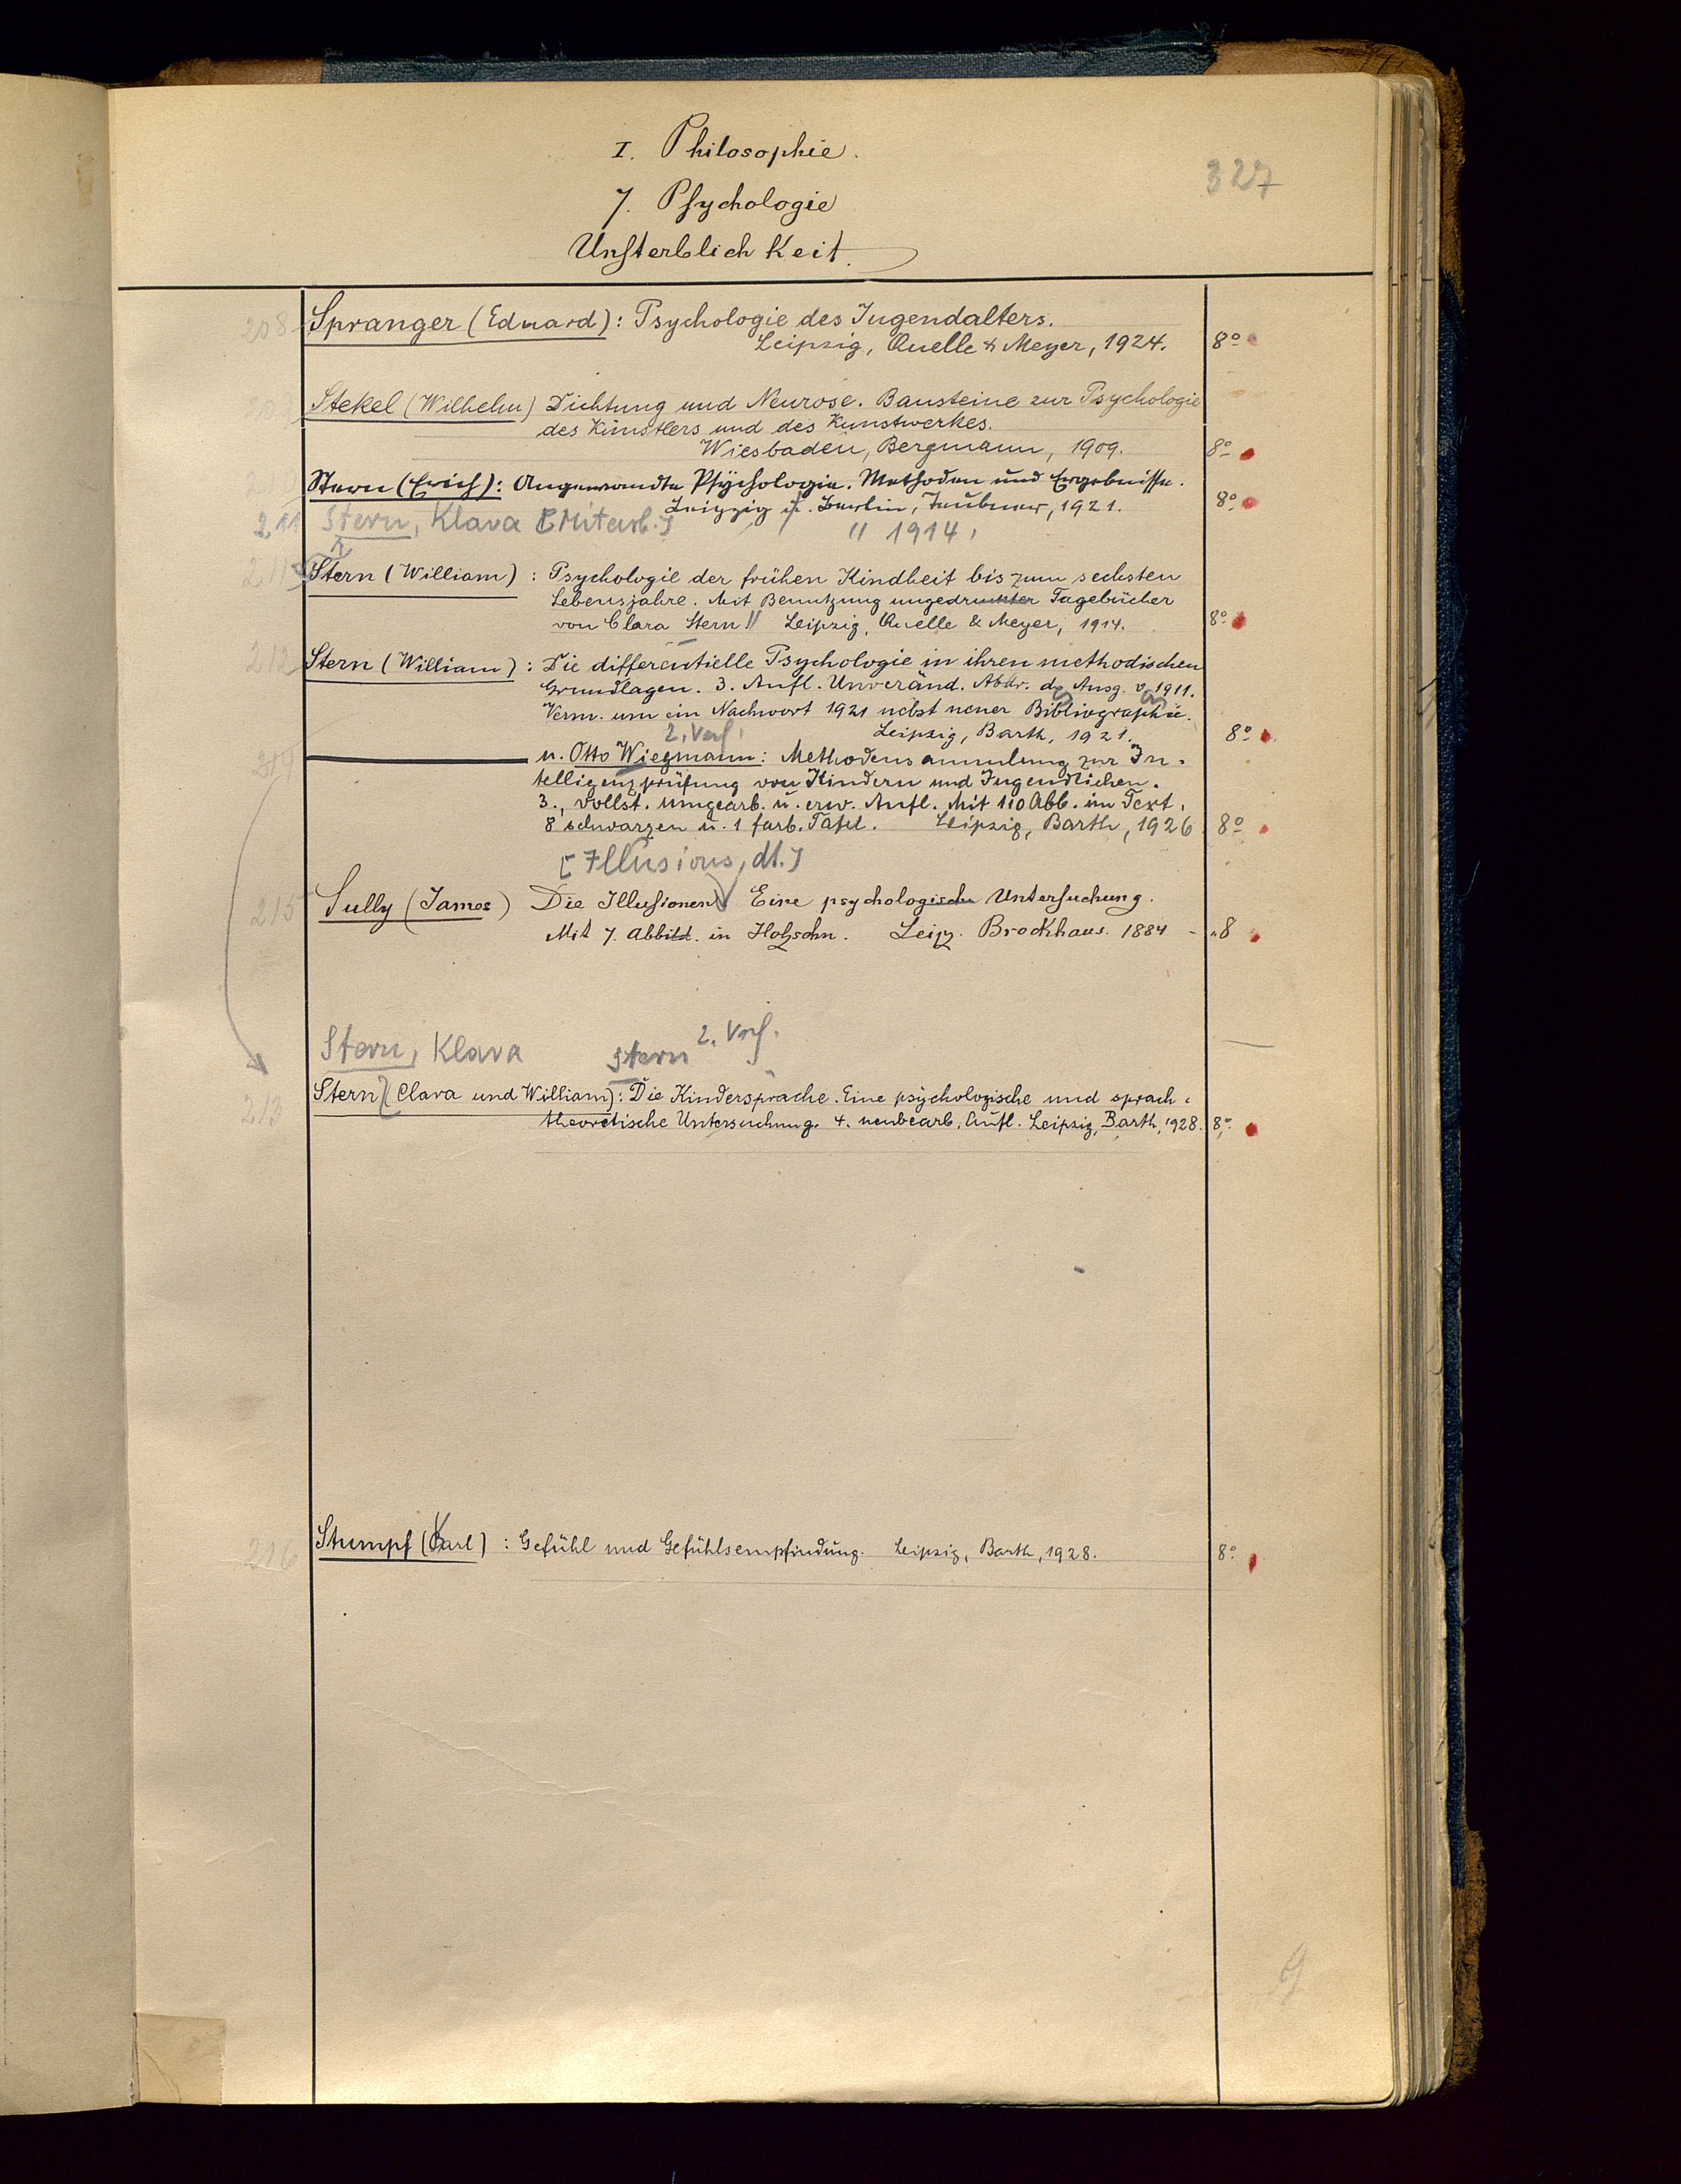 I. Philosophie.
327
7. Psychologie
Unsterblichkeit.
208 Spranger (Eduard): Psychologie des Jugendalters.
Leipzig, Quelle & Meyer, 1924. 8°
Stekel (Wilhelm) Dichtung und Neurose. Bausteine zur Psychologie
des Künstlers und des Kunstwerkes.
Wiesbaden, Bergmann, 1909. 8°
Stern (Erich): Angewandte Psychologie. Methoden und Ergebnisse.
Leipzig u. Berlin, Teubner, 1921. 8°
211 Stern, Klara [Mitarb.] " 1914.
Stern (William): Psychologie der frühen Kindheit bis zum sechsten
Lebensjahre. Mit Benutzung ungedruckter Tagebücher
von Clara Stern // Leipzig, Quelle & Meyer, 1914. 8°
212 Stern (William): Die differentielle Psychologie in ihren methodischen
Grundlagen. 3. Aufl. Unveränd. Abdr. d. Ausg. v. 1911.
Verm. um ein Nachwort 1921 nebst neuer Bibliographie.
2. Verf. Leipzig, Barth, 1921. 8°
214 — u. Otto Wiegmann: Methodensammlung zur In-
telligenzprüfung von Kindern und Jugendlichen.
3., vollst. umgearb. u. erw. Aufl. Mit 110 Abb. im Text,
8 schwarzen u. 1 farb. Tafel. Leipzig, Barth, 1926 8°
[Illusions, dt.]
215 Sully (James) Die Illusionen Eine psychologische Untersuchung.
Mit 7. Abbild. in Holzschn. Leipz. Brockhaus. 1884 - "8
Stern, Klara Stern 2. Verf.
213 Stern (Clara und William): Die Kindersprache. Eine psychologische und sprach-
theoretische Untersuchung. 4. neubearb. Aufl. Leipzig, Barth, 1928. 8°
216 Stumpf (Karl): Gefühl und Gefühlsempfindung. Leipzig, Barth, 1928. 8°
9